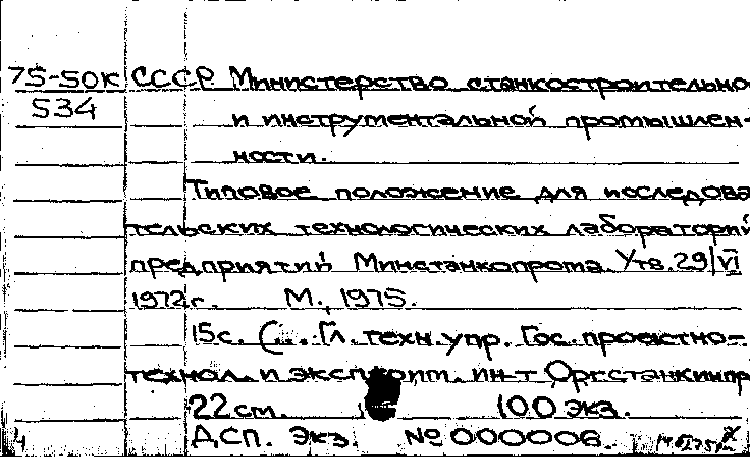 75-50к СССР Министерство станкостроительно
534 и инструментальной промышлен-
ности.
Типовое положение для исследова
тельских технологических лабораторий
предприятий Минстанкопрома. Утв. 29/VI
1972г. М., 1975.
15с. (... Гл. техн. упр. Гос. проектно-
технол. и эксперим. ин-т Оргстанкинпр
22см. 100 экз.
ДСП. Экз. № 000006.